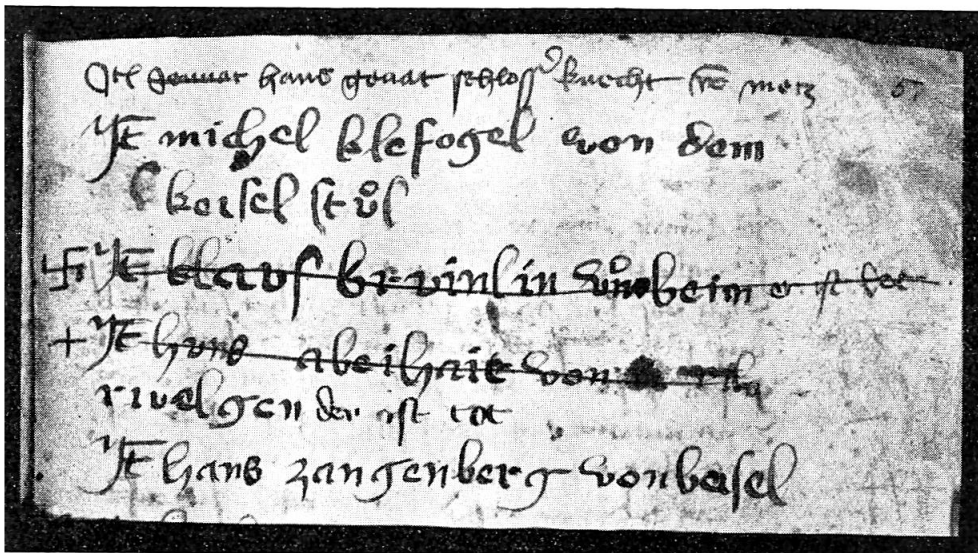 Itē gonnat hans gonat schlosser knecht vō metz 57
Itē michel klefogel von dem
keisel stůl
Itē klavs brvinlin vōnheim er ist tot
Itē hans abeihait von
rivelgen der ist tot
Itē hans zangenberg von basel